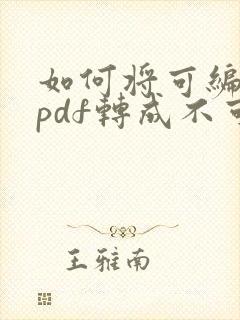 如何将可编
pdf转成不可
王雅南